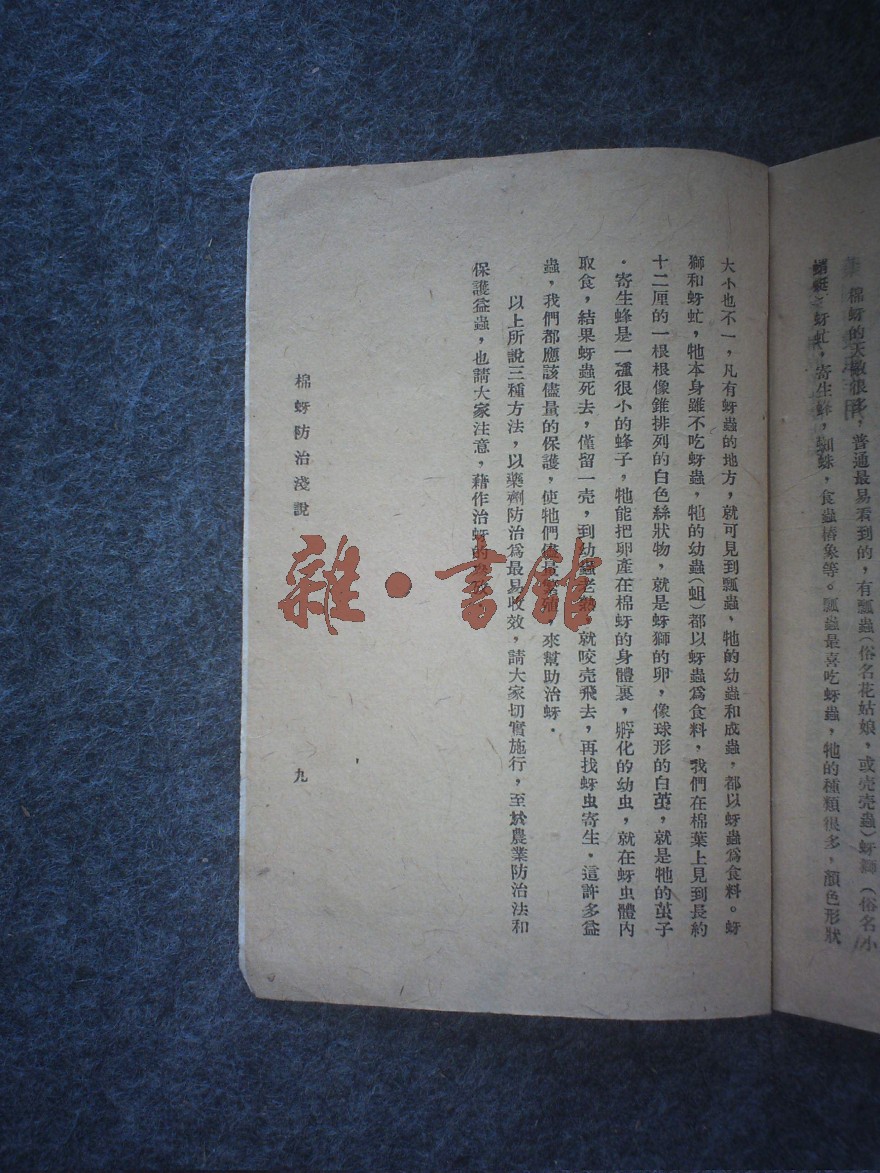 棉蚜的天敵很多，普通最易看到的，有瓢蟲（俗名花姑娘，或壳壳蟲）蚜獅（俗名小
蜻蜓），蚜虻，寄生蜂，蜘蛛，食蟲椿象等。瓢蟲最喜吃蚜蟲，牠的種類很多，顏色形狀
大小也不一，凡有蚜蟲的地方，就可見到瓢蟲，牠的幼蟲和成蟲，都以蚜蟲爲食料。蚜
獅和蚜虻，牠本身雖不吃蚜蟲，牠的幼蟲（蛆）都以蚜蟲爲食料，我們在棉葉上見到長約
十二厘的一根根像錐排列的白色絲狀物，就是蚜獅的卵，像球形的白茧，就是牠的茧子
．寄生蜂是一種很小的蜂子，牠能把卵產在棉蚜的身體裏，孵化的幼虫，就在蚜虫體內
取食，結果蚜蟲死去，僅留一壳，到幼蟲老熟，就咬壳飛去，再找蚜虫寄生．這許多益
蟲，我們都應該儘量的保護，使牠們 來幫助治蚜．
以上所說三種方法，以藥劑防治爲最易收效，請大家切實施行，至於農業防治法和
保護益蟲，也請大家注意，藉作治蚜的
棉蚜防治淺說
九
雜·書館